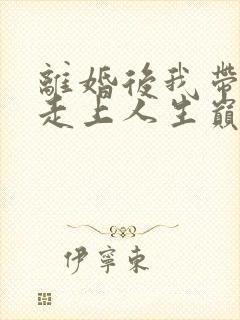 離婚後我帶
走上人生巔
伊寧東